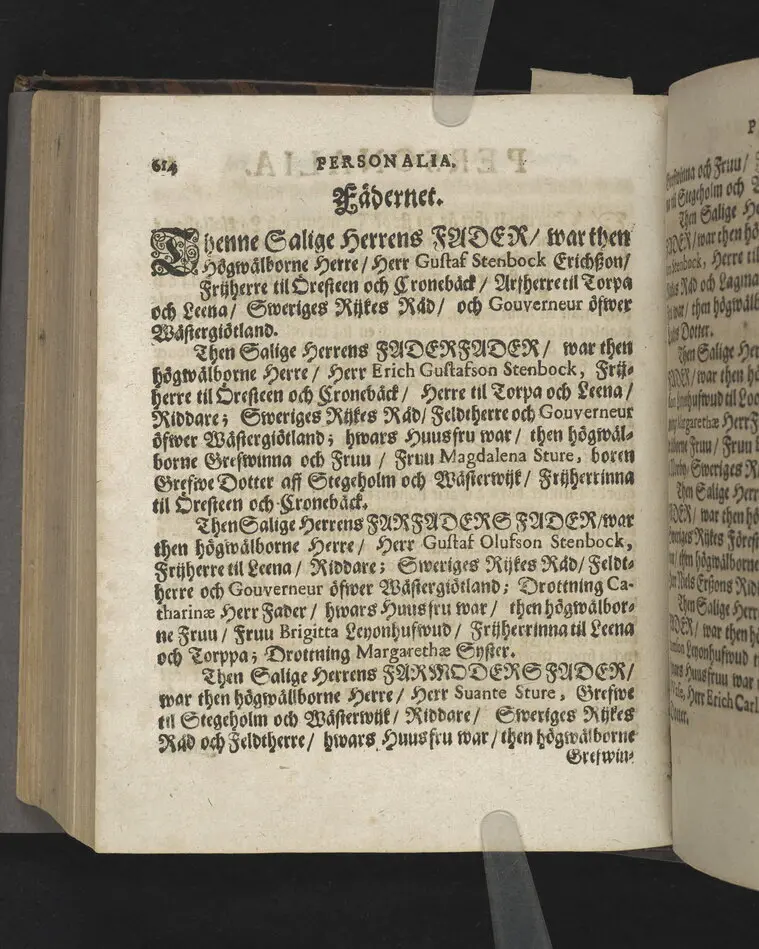 614 PERSONALIA.
Fädernet.
Thenne Salige Herrens FADER/ war then
Högwälborne Herre/ Herr Gustaf Stenbock Erichßon/
Frijherre til Öresteen och Cronebäck/ Arfherre til Torpa
och Leena/ Sweriges Rijkes Råd/ och Gouverneur öfwer
Wästergiötland.
Then Salige Herrens FADERFADER/ war then
högwälborne Herre/ Herr Erich Gustafson Stenbock, Frij-
herre til Öresteen och Cronebäck/ Herre til Torpa och Leena/
Riddare; Sweriges Rijkes Råd/ Feldtherre och Gouverneur
öfwer Wästergiötland; hwars Huusfru war/ then högwäl-
borne Grefwinna och Fruu/ Fruu Magdalena Sture, boren
Grefwe Dotter aff Stegeholm och Wästerwijk/ Frijherrinna
til Öresteen och Cronebäck.
Then Salige Herrens FARFADERS FADER/ war
then högwälborne Herre/ Herr Gustaf Olufson Stenbock,
Frijherre til Leena/ Riddare; Sweriges Rijkes Råd/ Feldt-
herre och Gouverneur öfwer Wästergiötland; Drottning Ca-
tharinæ Herr Fader/ hwars Huusfru war/ then högwälbor-
ne Fruu/ Fruu Brigitta Leyonhufwud/ Frijherrinna til Leena
och Torppa; Drottning Margarethæ Syster.
Then Salige Herrens FARMODERS FADER/
war then högwällborne Herre/ Herr Suante Sture, Grefwe
til Stegeholm och Wästerwijk/ Riddare/ Sweriges Rijkes
Råd och Feldtherre/ hwars Huusfru war/ then högwälborne
Grefwin-